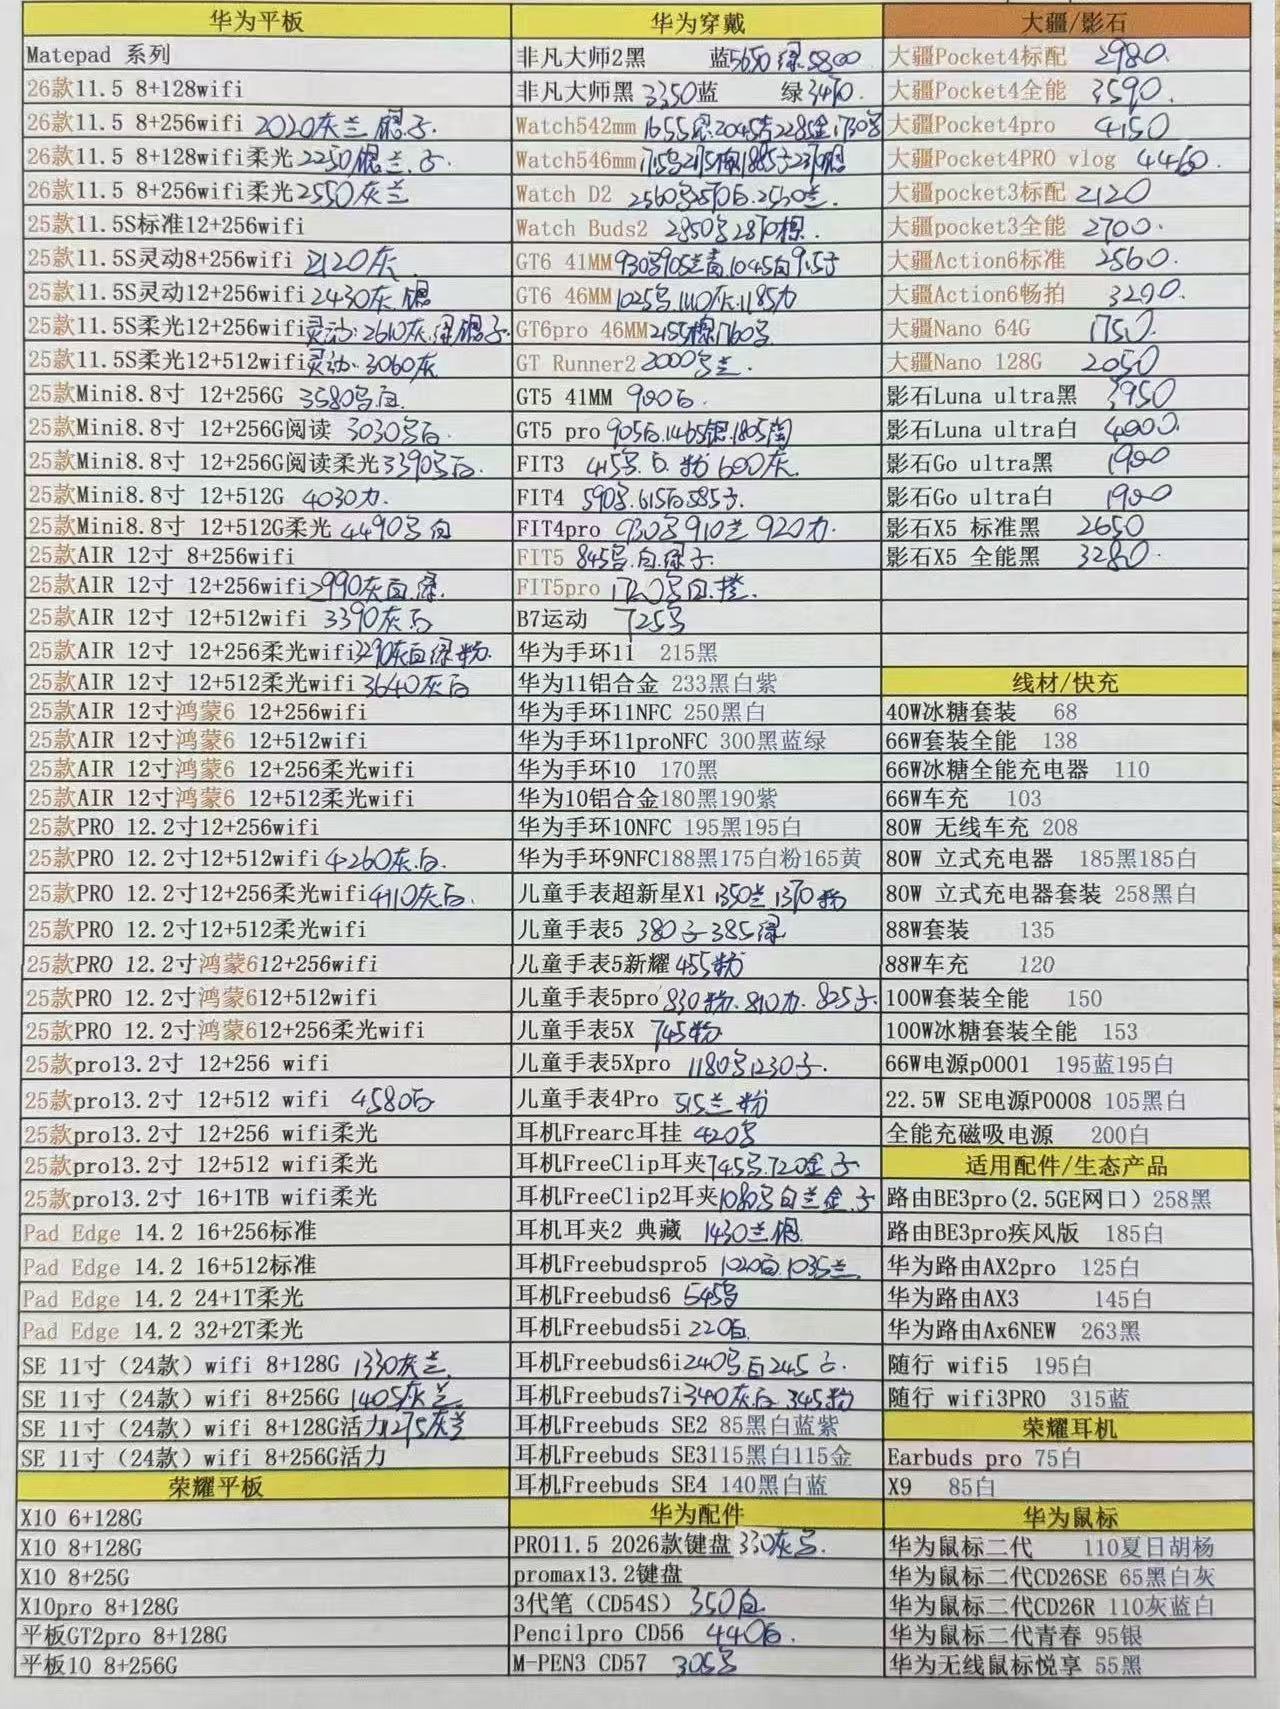 华为平板
Matepad 系列
26款11.5 8+128wifi
26款11.5 8+256wifi 2020灰兰 银子
26款11.5 8+128wifi柔光2250银兰.子.
26款11.5 8+256wifi柔光2550灰兰
25款11.5S标准12+256wifi
25款11.5S灵动8+256wifi 2120灰
25款11.5S灵动12+256wifi2430灰.银
25款11.5S柔光12+256wifi灵动·2610灰.绿银子.
25款11.5S柔光12+512wifi灵动·3060灰
25款Mini8.8寸 12+256G 3580号白.
25款Mini8.8寸 12+256G阅读 3030号白.
25款Mini8.8寸 12+256G阅读柔光3390号白.
25款Mini8.8寸 12+512G 4030力.
25款Mini8.8寸 12+512G柔光 4490号白
25款AIR 12寸 8+256wifi
25款AIR 12寸 12+256wifi2990灰白.绿.
25款AIR 12寸 12+512wifi 3390灰白
25款AIR 12寸 12+256柔光wifi3290灰白绿粉.
25款AIR 12寸 12+512柔光wifi3640灰白
25款AIR 12寸鸿蒙6 12+256wifi
25款AIR 12寸鸿蒙6 12+512wifi
25款AIR 12寸鸿蒙6 12+256柔光wifi
25款AIR 12寸鸿蒙6 12+512柔光wifi
25款PRO 12.2寸12+256wifi
25款PRO 12.2寸12+512wifi4260灰.白.
25款PRO 12.2寸12+256柔光wifi4110灰白.
25款PRO 12.2寸12+512柔光wifi
25款PRO 12.2寸鸿蒙612+256wifi
25款PRO 12.2寸鸿蒙612+512wifi
25款PRO 12.2寸鸿蒙612+256柔光wifi
25款pro13.2寸 12+256 wifi
25款pro13.2寸 12+512 wifi 4580白
25款pro13.2寸 12+256 wifi柔光
25款pro13.2寸 12+512 wifi柔光
25款pro13.2寸 16+1TB wifi柔光
Pad Edge 14.2 16+256标准
Pad Edge 14.2 16+512标准
Pad Edge 14.2 24+1T柔光
Pad Edge 14.2 32+2T柔光
SE 11寸（24款）wifi 8+128G 1330灰兰.
SE 11寸（24款）wifi 8+256G 1405灰兰.
SE 11寸（24款）wifi 8+128G活力1275灰兰
SE 11寸（24款）wifi 8+256G活力
荣耀平板
X10 6+128G
X10 8+128G
X10 8+25G
X10pro 8+128G
平板GT2pro 8+128G
平板10 8+256G
华为穿戴
非凡大师2黑 蓝5650绿.5800
非凡大师黑 3350蓝 绿 3470.
Watch542mm 1655绿.2045青2285金.1730号
Watch546mm 1715号2175棕.1885子2370银
Watch D2 2560号2570白.2520兰.
Watch Buds2 2850号2870棕.
GT6 41MM930号905兰青.1045白915子
GT6 46MM1025号.1110灰.1185力
GT6pro 46MM2155棕1760号
GT Runner2 2000号兰.
GT5 41MM 900白.
GT5 pro 905白.1465银.1805陶
FIT3 415号.白.粉 600灰.
FIT4 590号.615白585子.
FIT4pro 930号910兰920力.
FIT5 845号.白.绿子.
FIT5pro 1720号白.橙.
B7运动 725号
华为手环11 215黑
华为11铝合金 233黑白紫
华为手环11NFC 250黑白
华为手环11proNFC 300黑蓝绿
华为手环10 170黑
华为10铝合金180黑190紫
华为手环10NFC 195黑195白
华为手环9NFC188黑175白粉165黄
儿童手表超新星X1 1350兰1370粉
儿童手表5 380子385绿
儿童手表5新耀 455粉
儿童手表5pro 830粉.810力.825子.
儿童手表5X 745粉
儿童手表5Xpro 1180号1230子.
儿童手表4Pro 515兰粉
耳机Frearc耳挂 420号
耳机FreeClip耳夹745号.720金子
耳机FreeClip2耳夹1080号白兰金.子
耳机耳夹2 典藏 1430兰银.
耳机Freebudspro5 1020白.1035兰
耳机Freebuds6 545号
耳机Freebuds5i 220白.
耳机Freebuds6i240号白245子.
耳机Freebuds7i340灰白.345粉
耳机Freebuds SE2 85黑白蓝紫
耳机Freebuds SE3115黑白115金
耳机Freebuds SE4 140黑白蓝
华为配件
PRO11.5 2026款键盘 330灰号.
promax13.2键盘
3代笔（CD54S） 350白.
Pencilpro CD56 440白.
M-PEN3 CD57 305号
大疆/影石
大疆Pocket4标配 2980.
大疆Pocket4全能 3590.
大疆Pocket4pro 4150
大疆Pocket4PRO vlog 4460.
大疆pocket3标配 2120
大疆pocket3全能 2700.
大疆Action6标准 2560.
大疆Action6畅拍 3290.
大疆Nano 64G 1750.
大疆Nano 128G 2050
影石Luna ultra黑 3950
影石Luna ultra白 4000.
影石Go ultra黑 1900
影石Go ultra白 1900
影石X5 标准黑 2650
影石X5 全能黑 3280.
线材/快充
40W冰糖套装 68
66W套装全能 138
66W冰糖全能充电器 110
66W车充 103
80W 无线车充 208
80W 立式充电器 185黑185白
80W 立式充电器套装 258黑白
88W套装 135
88W车充 120
100W套装全能 150
100W冰糖套装全能 153
66W电源p0001 195蓝195白
22.5W SE电源P0008 105黑白
全能充磁吸电源 200白
适用配件/生态产品
路由BE3pro(2.5GE网口) 258黑
路由BE3pro疾风版 185白
华为路由AX2pro 125白
华为路由AX3 145白
华为路由Ax6NEW 263黑
随行 wifi5 195白
随行 wifi3PRO 315蓝
荣耀耳机
Earbuds pro 75白
X9 85白
华为鼠标
华为鼠标二代 110夏日胡杨
华为鼠标二代CD26SE 65黑白灰
华为鼠标二代CD26R 110灰蓝白
华为鼠标二代青春 95银
华为无线鼠标悦享 55黑